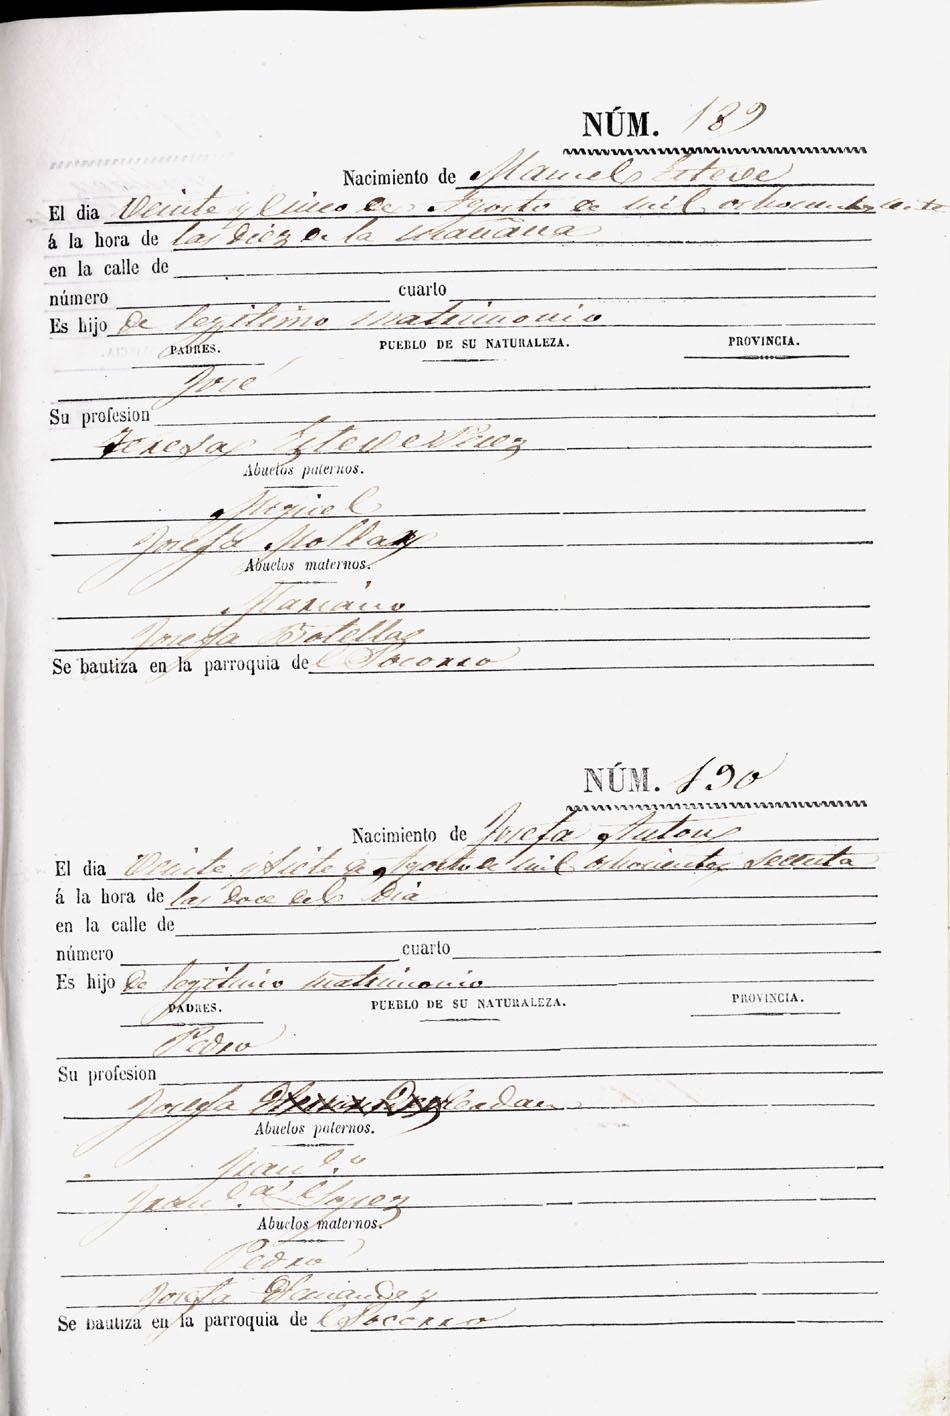 NÚM. 189
Nacimiento de Manuel Esteve
El dia Veinte y Cinco de Agosto de mil ochocientos
á la hora de las diez de la mañana
en la calle de
número cuarto
Es hijo de legitimo matrimonio
PADRES. PUEBLO DE SU NATURALEZA. PROVINCIA.
José
Su profesion
Teresa Esteve Perez
Abuelos paternos.
Miguel
Josefa Molla
Abuelos maternos.
Mariano
Josefa Botella
Se bautiza en la parroquia de l Socorro
NÚM. 190
Nacimiento de Josefa Anton
El dia Veinte y Siete de Agosto de mil ochocientos secenta
á la hora de las doce del Dia
en la calle de
número cuarto
Es hijo de legitimo matrimonio
PADRES. PUEBLO DE SU NATURALEZA. PROVINCIA.
Pedro
Su profesion
Josefa Cerdan
Abuelos paternos.
Fran.co
Fran.ca Lopez
Abuelos maternos.
Pedro
Josefa Hernandez
Se bautiza en la parroquia de l Socorro